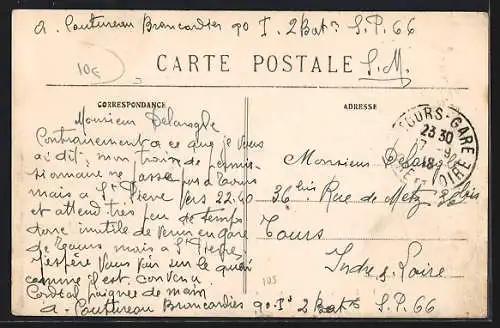 a. Coutureau Brancardier 90 I. 2 Bat. S.P. 66
10€
CARTE POSTALE S.M.
CORRESPONDANCE
ADRESSE
TOURS-GARE
23 30
7 - 9
18
INDRE ET LOIRE
Monsieur Delaroghe
Contrairement a ce que je vous
ai dit, mon train de permis-
sionnaire ne passe pas a Tours
mais a St Pierre vers 22.40
et attend très peu de temps
donc inutile de venir en gare
de Tours mais a St Pierre
J'espère vous voir sur le quai
comme il est convenu
Cordial poignée de main
a. Coutureau Brancardier 90 I. 2 Bat. S.P. 66
Monsieur
36 bis Rue de Metz
Tours
Indre & Loire
105